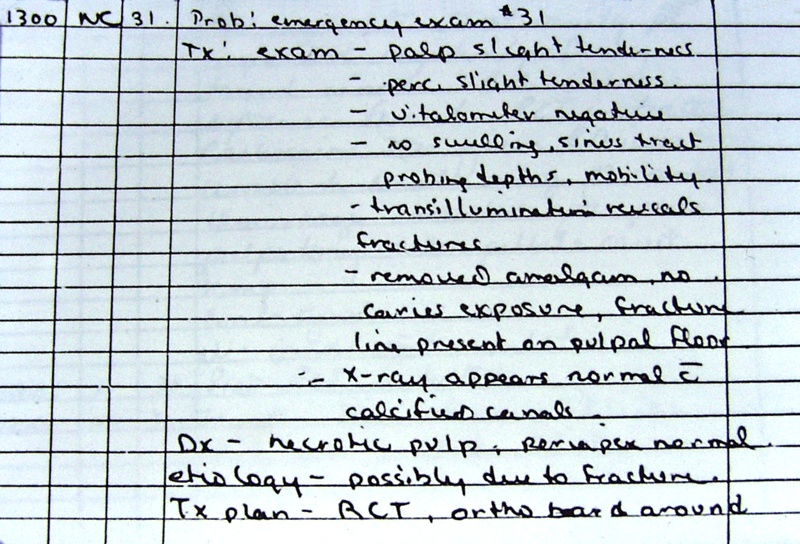 1300 NC 31. Prob: emergency exam #31
Tx: exam - palp slight tenderness
- perc slight tenderness.
- vitalometer negative
- no swelling, sinus tract
probing depths, mobility.
- transillumination reveals
fractures.
- removed amalgam, no
caries exposure, fracture
line present on pulpal floor
- x-ray appears normal c̄
calcified canals.
Dx - necrotic pulp, periapex normal.
etiology - possibly due to fracture.
Tx plan - RCT, ortho band around